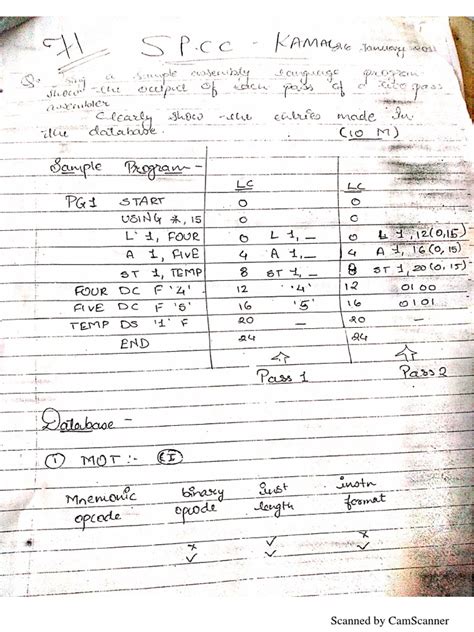 SPCC - KAMAL January
a sample assembly language program
show the output of each pass of a two pass
assembler
Clearly show the entries made in
the database (10 M)
Sample Program -
LC LC
PG1 START 0 0
USING *, 15 0 0
L 1, FOUR 0 L 1, _ 0 L 1, 12(0,15)
A 1, FIVE 4 A 1, _ 4 A 1, 16(0,15)
ST 1, TEMP 8 ST 1, _ 8 ST 1, 20(0,15)
FOUR DC F '4' 12 '4' 12 0100
FIVE DC F '5' 16 '5' 16 0101
TEMP DS '1' F 20 - 20 -
END 24 24
Pass 1 Pass 2
Database -
① MOT :- I
Mnemonic binary inst instn
opcode opcode length format
x ✓ x
✓ ✓
Scanned by CamScanner